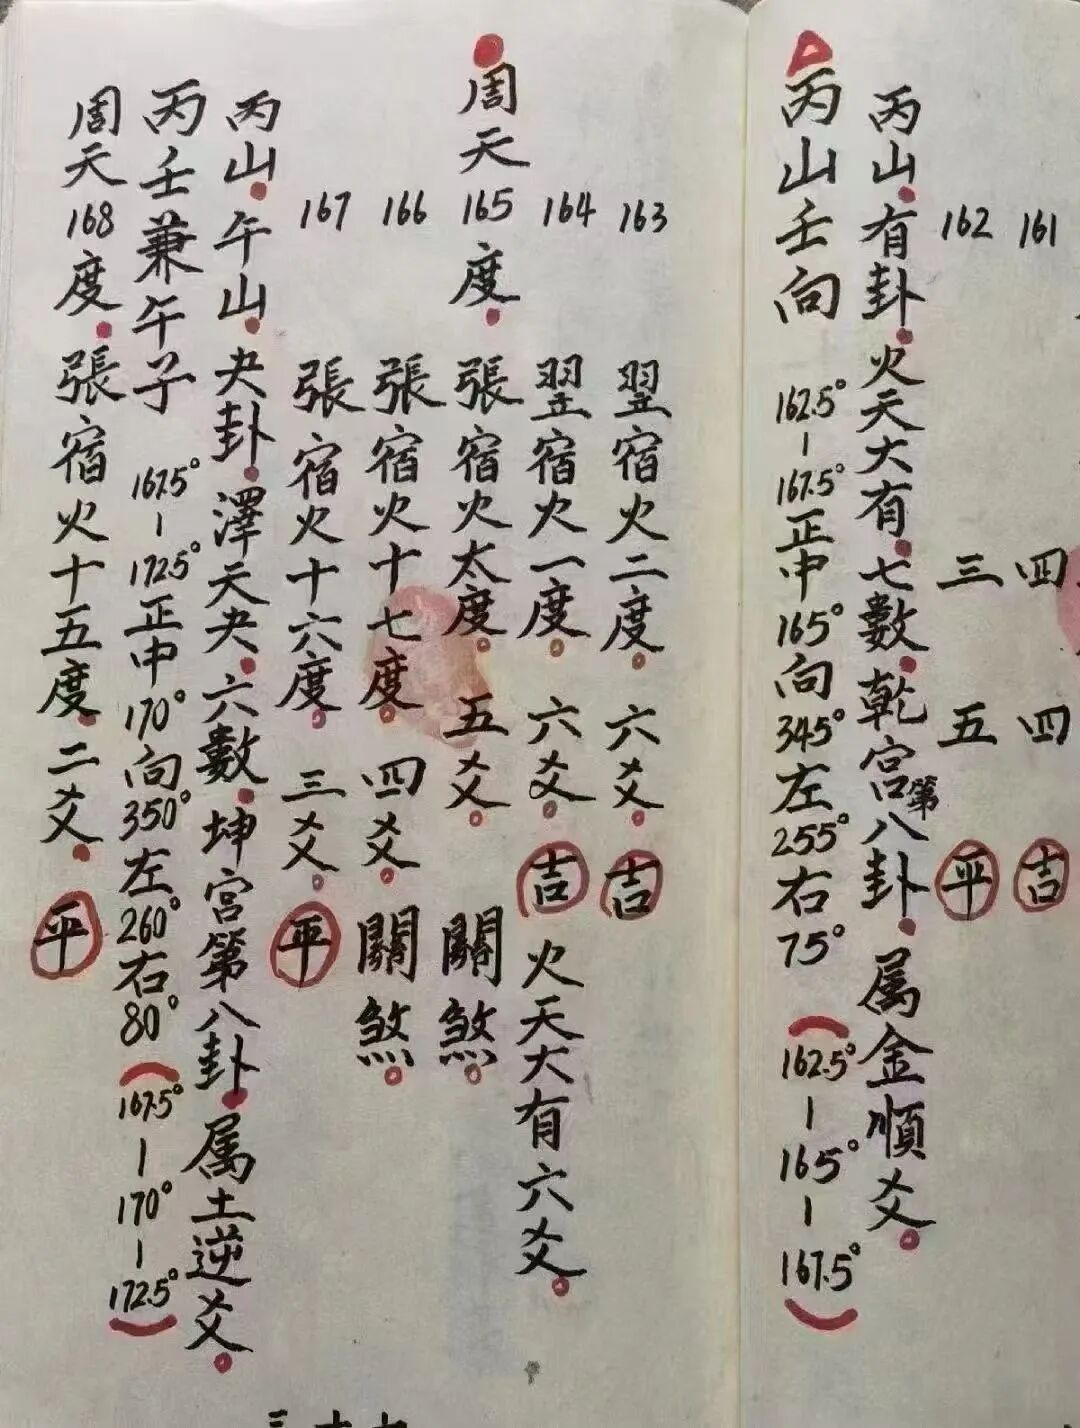 161 四 四 吉
162 三 五 平
丙山.有卦.火天大有.七數.乾宫第八卦.属金順爻。
丙山壬向 162.5°-167.5°正中165°向345°左255°右75°(162.5°-165°-167.5°)
163 翌宿火二度。六爻。吉
164 翌宿火一度。六爻。吉 火天大有六爻。
周天165度.張宿火太度。五爻。關煞。
166 張宿火十七度。四爻。關煞。
167 張宿火十六度。三爻。平
丙山.午山.夬卦.澤天夬.六數.坤宫第八卦.属土逆爻。
丙壬兼午子 167.5°-172.5°正中170°向350°左260°右80°(167.5°-170°-172.5°)
周天168度.張宿火十五度.二爻.平